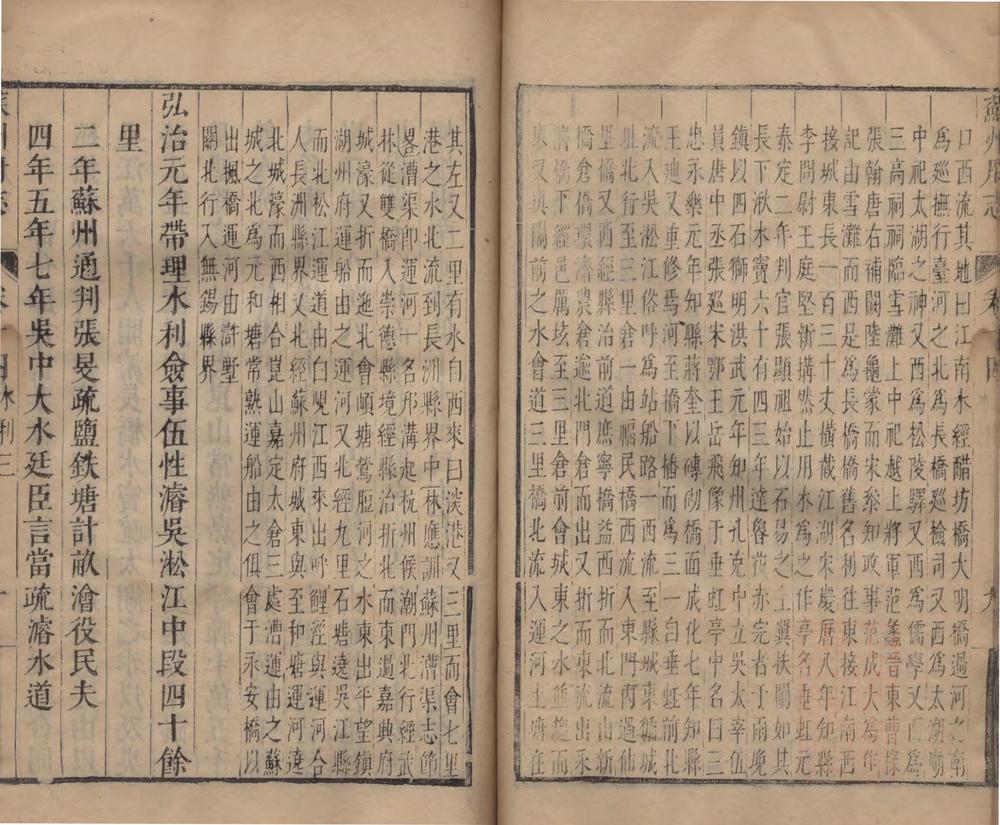 口西流其地曰江南水經醋坊橋大明橋過河之南
爲巡撫行臺河之北爲長橋巡檢司又西爲太湖廟
中祀太湖之神又西爲松陵驛又西爲儒學又西爲
三高祠臨雪灘上中祀越上將軍范蠡晉東曹掾
張翰唐右補闕陸龜蒙而宋叅知政事范成大爲
記由雪灘而西是爲長橋橋舊名利往東接江南西
接城東長一百三十丈橫截江湖宋慶曆八年知縣
李問尉王庭堅新搆然止用木爲之作亭名垂虹元
泰定二年判官張顯祖始以石易之
長下湫水竇六十有四三年達魯花赤完者于兩堍
鎮以四石獅明洪武元年知州孔克中立吳太宰伍
忠丞中丞張巡宋鄂王岳飛像于垂虹亭中名曰三
忠永樂元年知縣蔣奎以磚砌橋面成化七年知縣
王迪又重修焉河至橋下播而爲三一自垂虹前北
流入吳淞江俗呼爲站船路一西流至縣城東循城
址北行至三里倉一由福民橋西流入東門內過仙
里橋又西經縣治前道庶寧橋益西又折而北流出
橋倉橋濃倉逾北門橋而出又折而東流出新
東又與閘前之水會道三里橋北流入運河土塘在
其左又二里有水自西來曰淡港又三里而會七里
港之水北流到長洲縣界中林應訓蘇州漕渠志節
畧漕渠卽運河一名邗溝起杭州候潮門北行經武
林從雙橋入崇德縣境經縣治折北而東過嘉興府
城濠又折而迤北會頔塘鶯脰河之水東出平望鎮
湖州府運船由之運河又北經九里石塘遶吳江縣
而北松江運道由白蜆江西來出呼鯉涇與運河合
人長洲縣界又北經蘇州府城東與至和塘運河遶
北城濠而西相合崑山嘉定太倉三處漕運由之蘇
城之北爲元和塘常熟運船由之俱會于永安橋以
出楓橋運河由滸墅
關北行入無錫縣界
弘治元年帶理水利僉事伍性濬吳淞江中段四十餘
里
二年蘇州通判張旻疏鹽鉄塘計畝濬役民夫
四年五年七年吳中大水廷臣言當疏濬水道